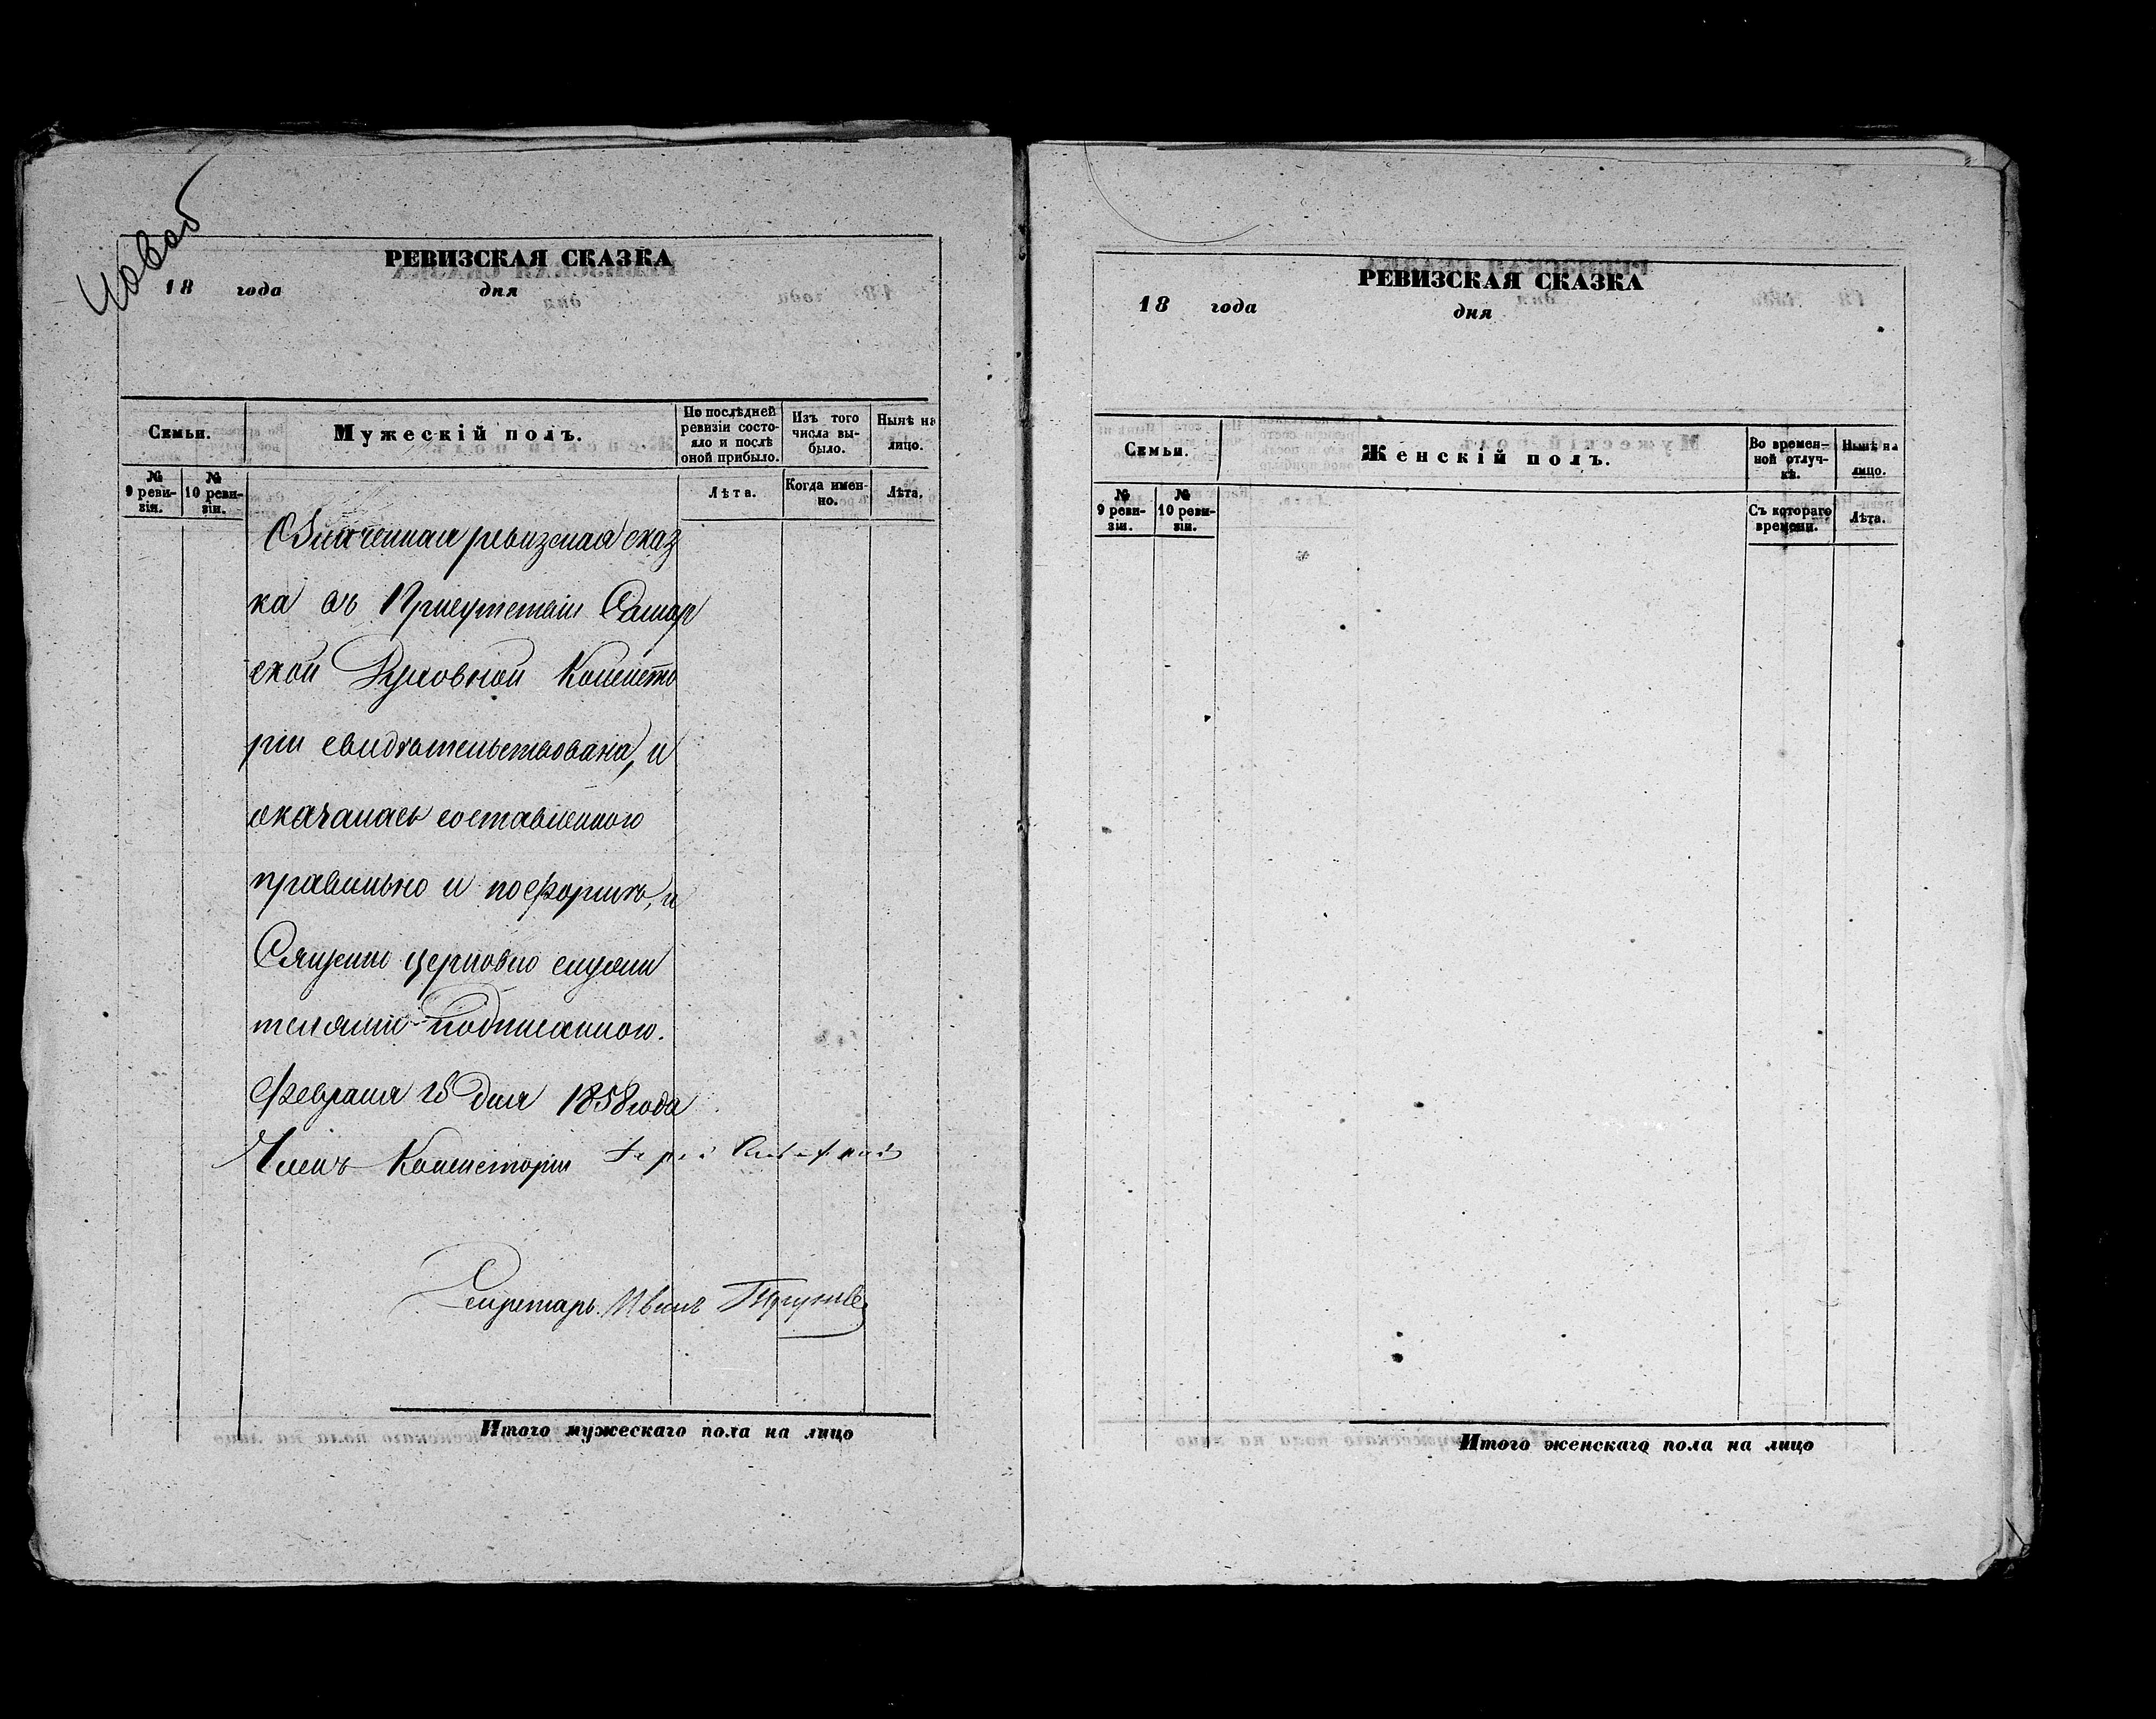 РЕВИЗСКАЯ СКАЗКА
18 года дня
Семьи.
Мужескій полъ.
По послѣдней ревизіи состояло и послѣ оной прибыло.
Изъ того числа выбыло.
Нынѣ на лицо.
№ 9 ревизіи.
№ 10 ревизіи.
Лѣта.
Когда именно.
Лѣта.
Означенная ревизская сказ
ка въ Присутствіи Самар
ской Духовной Консисто
ріи свидѣтельствована, и
оказалась составленною
правильно и по формѣ, и
Священно церковно служи
телями подписанною.
Февраля 28 дня 1858 года
Членъ Консисторіи
Секретарь Иванъ
Итого мужескаго пола на лицо
РЕВИЗСКАЯ СКАЗКА
18 года дня
Семьи.
Женскій полъ.
Во временной отлучкѣ.
Нынѣ на лицо.
№ 9 ревизіи.
№ 10 ревизіи.
Съ котораго времени.
Лѣта.
Итого женскаго пола на лицо